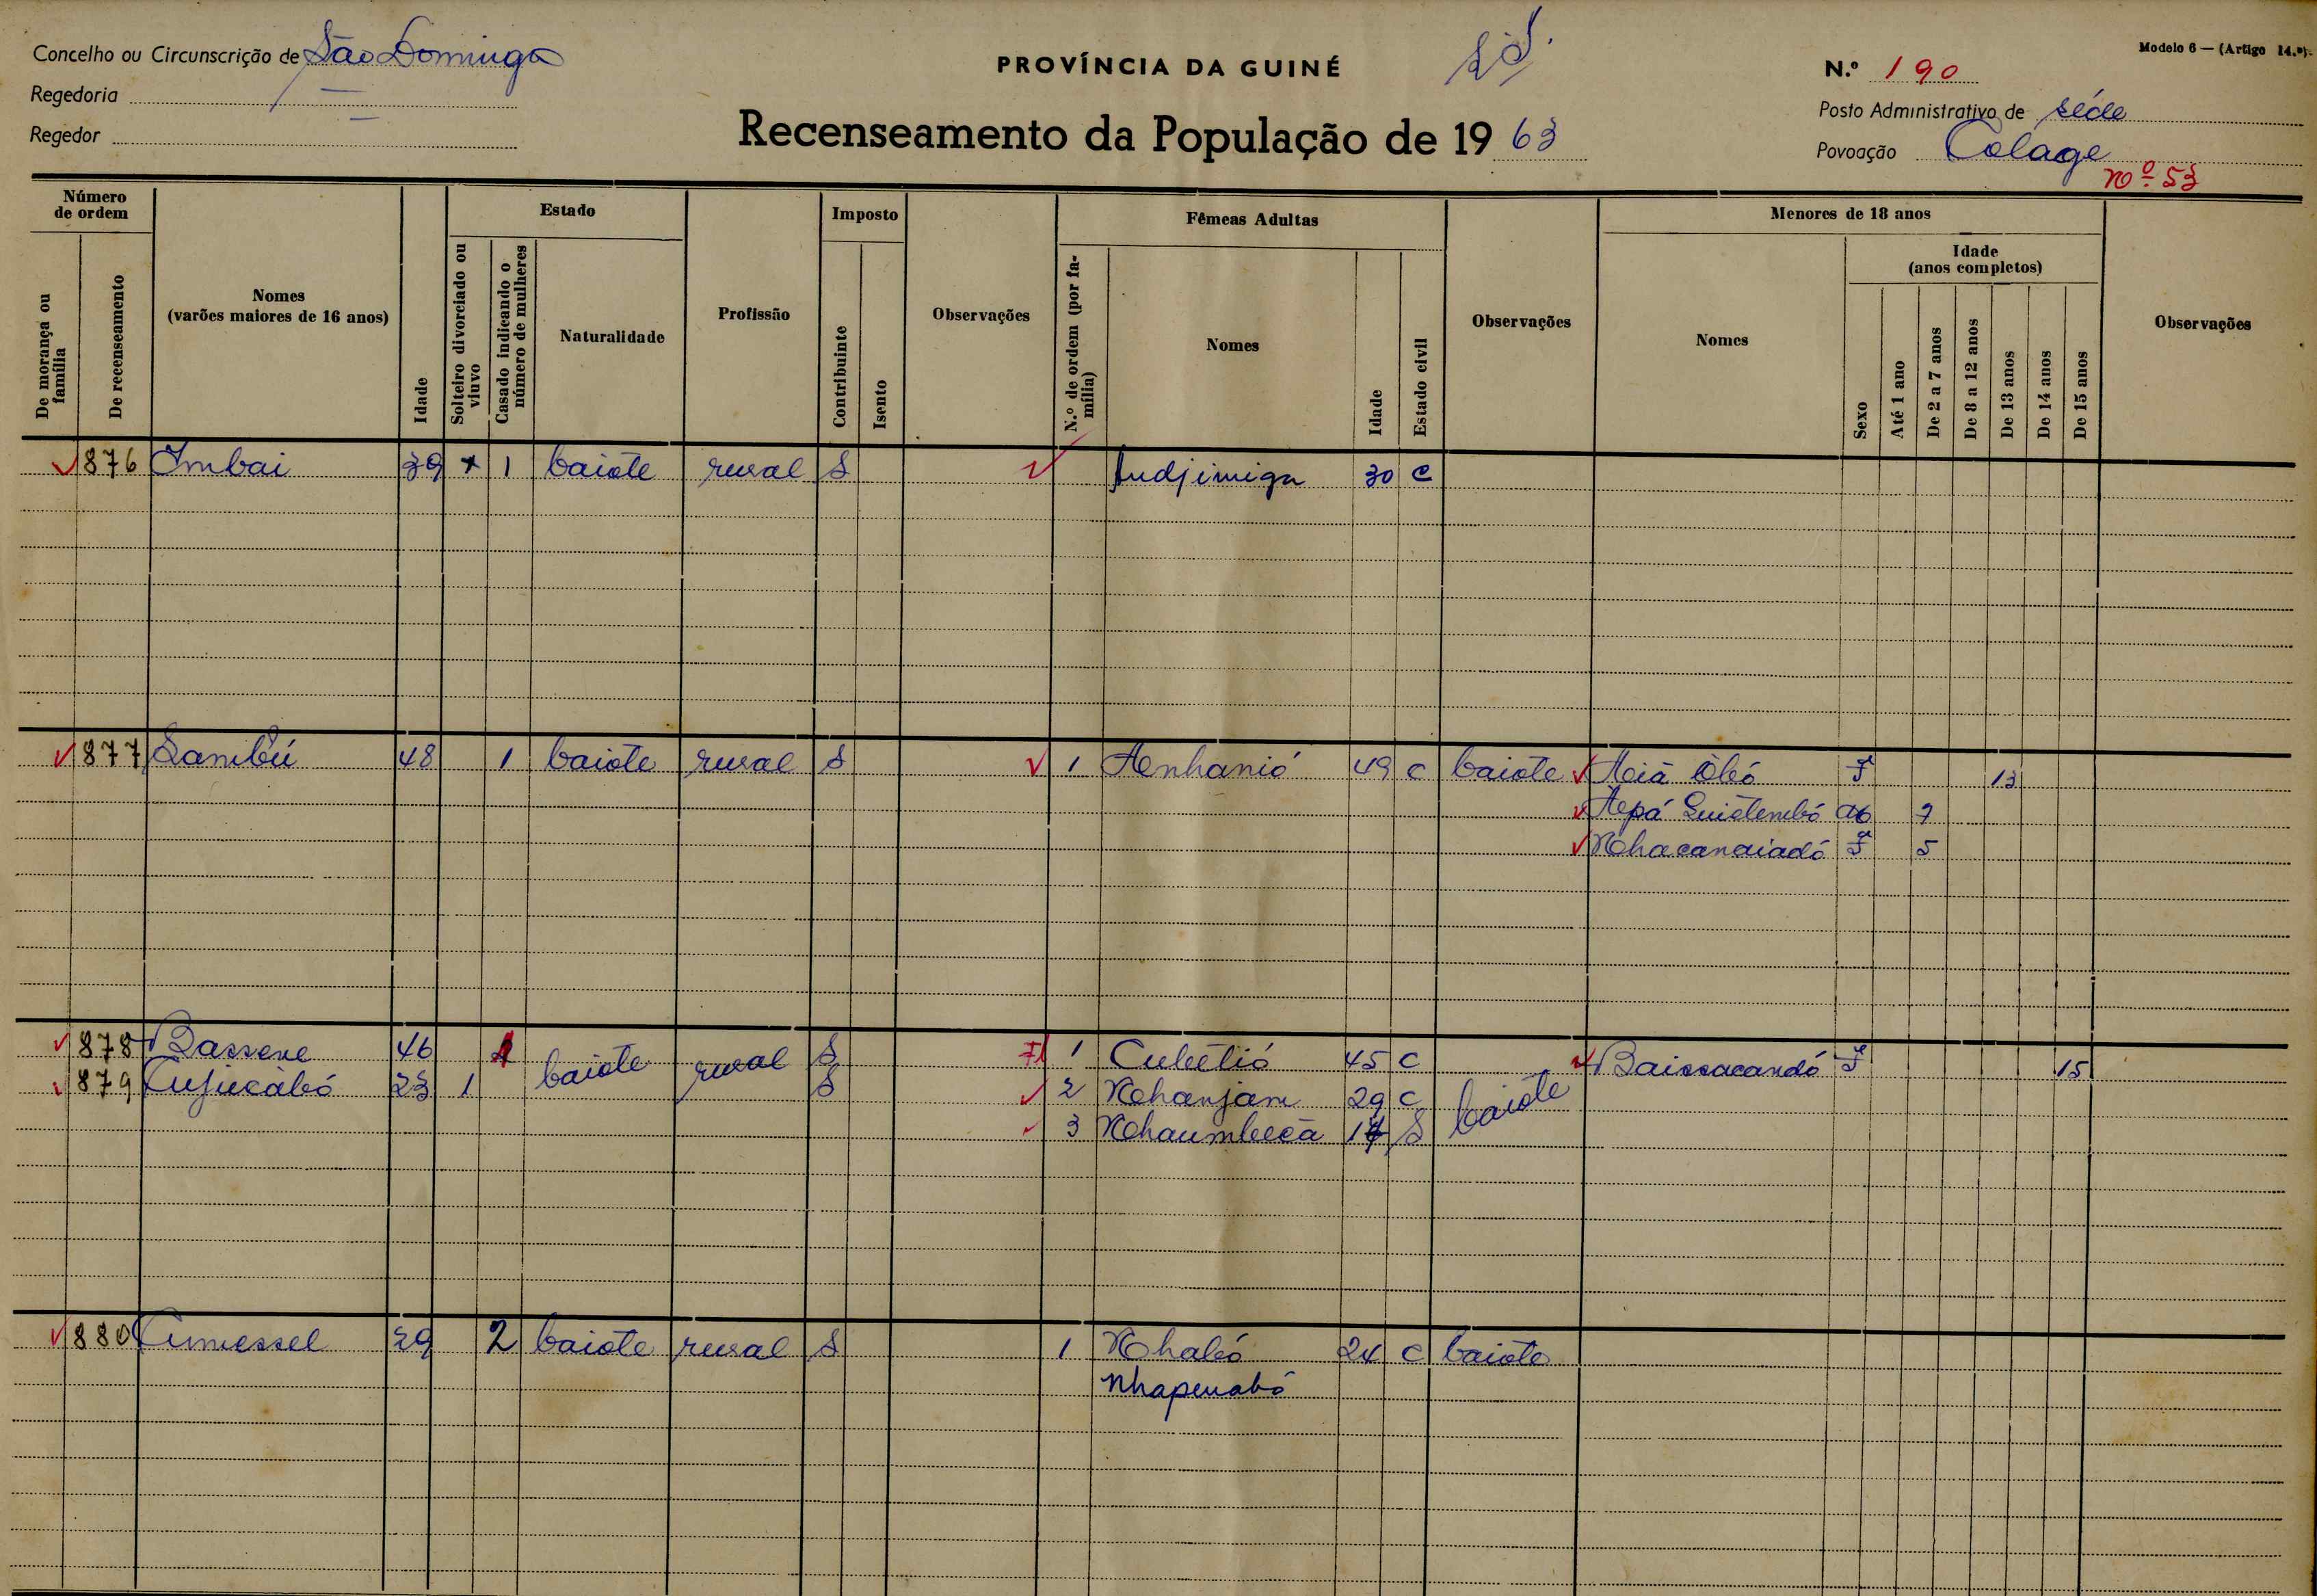 Modelo 6 — (Artigo 14.º).
Concelho ou Circunscrição de São Domingos
PROVÍNCIA DA GUINÉ
N.º 190
Regedoria
Posto Administrativo de séde
Regedor
Recenseamento da População de 1963
Povoação Colage
Nº 53
Número de ordem
Estado
Imposto
Fêmeas Adultas
Menores de 18 anos
De morança ou família
De recenseamento
Nomes (varões maiores de 16 anos)
Idade
Solteiro divorciado ou viuvo
Casado indicando o número de mulheres
Naturalidade
Profissão
Contribuinte
Isento
Observações
N.º de ordem (por família)
Nomes
Idade
Estado civil
Observações
Nomes
Sexo
Idade (anos completos)
Até 1 ano
De 2 a 7 anos
De 8 a 12 anos
De 13 anos
De 14 anos
De 15 anos
Observações
876 Imbai 39 1 baiote rural S Judjiminga 30 C
877 Sambú 48 1 baiote rural S 1 49 C baiote F 13
7
F 5
878 Bassene 46 baiote rural S 1 Cubetió 45 C Baissacandó F 15
879 Cujucàbó 23 1 S 2 Nhanjam 29 C baiote
3 S
880 Cumessel 29 2 baiote rural S 1 Nhabó 24 C baiote
Nhapenabó